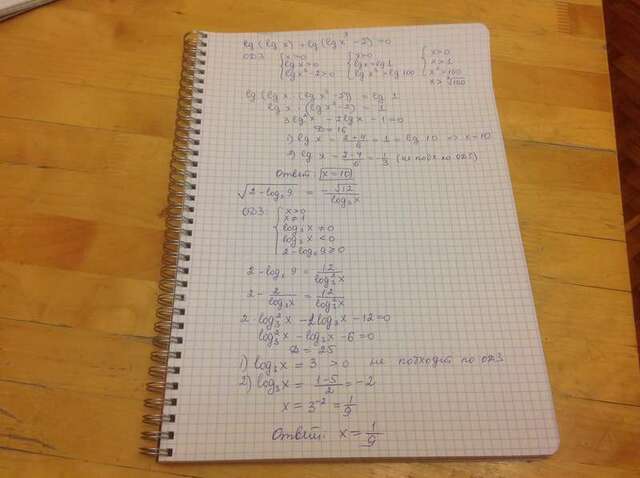 lg(lg x) + lg(lg x³ - 2) = 0
ОДЗ: { x>0 { x>0 { x>0
lg x > 0 lg x > lg 1 x > 1
lg x³ - 2 > 0 lg x³ > lg 100 x³ > 100
x > ∛100
lg(lg x · (lg x³ - 2)) = lg 1
lg x · (lg x³ - 2) = 1
3 lg² x - 2 lg x - 1 = 0
D = 16
1) lg x = (2+4)/6 = 1 = lg 10 => x = 10
2) lg x = (2-4)/6 = -1/3 (не подх по ОДЗ)
Ответ: x = 10
√(2 - logₓ 9) = -√12/log₃ x
ОДЗ: { x>0
x ≠ 1
log₃ x ≠ 0
log₃ x < 0
2 - logₓ 9 ≥ 0
2 - logₓ 9 = 12/log₃² x
2 - 2/log₃ x = 12/log₃² x
2 log₃² x - 2 log₃ x - 12 = 0
log₃² x - log₃ x - 6 = 0
D = 25
1) log₃ x = 3 > 0 не подходит по ОДЗ
2) log₃ x = (1-5)/2 = -2
x = 3⁻² = 1/9
Ответ: x = 1/9